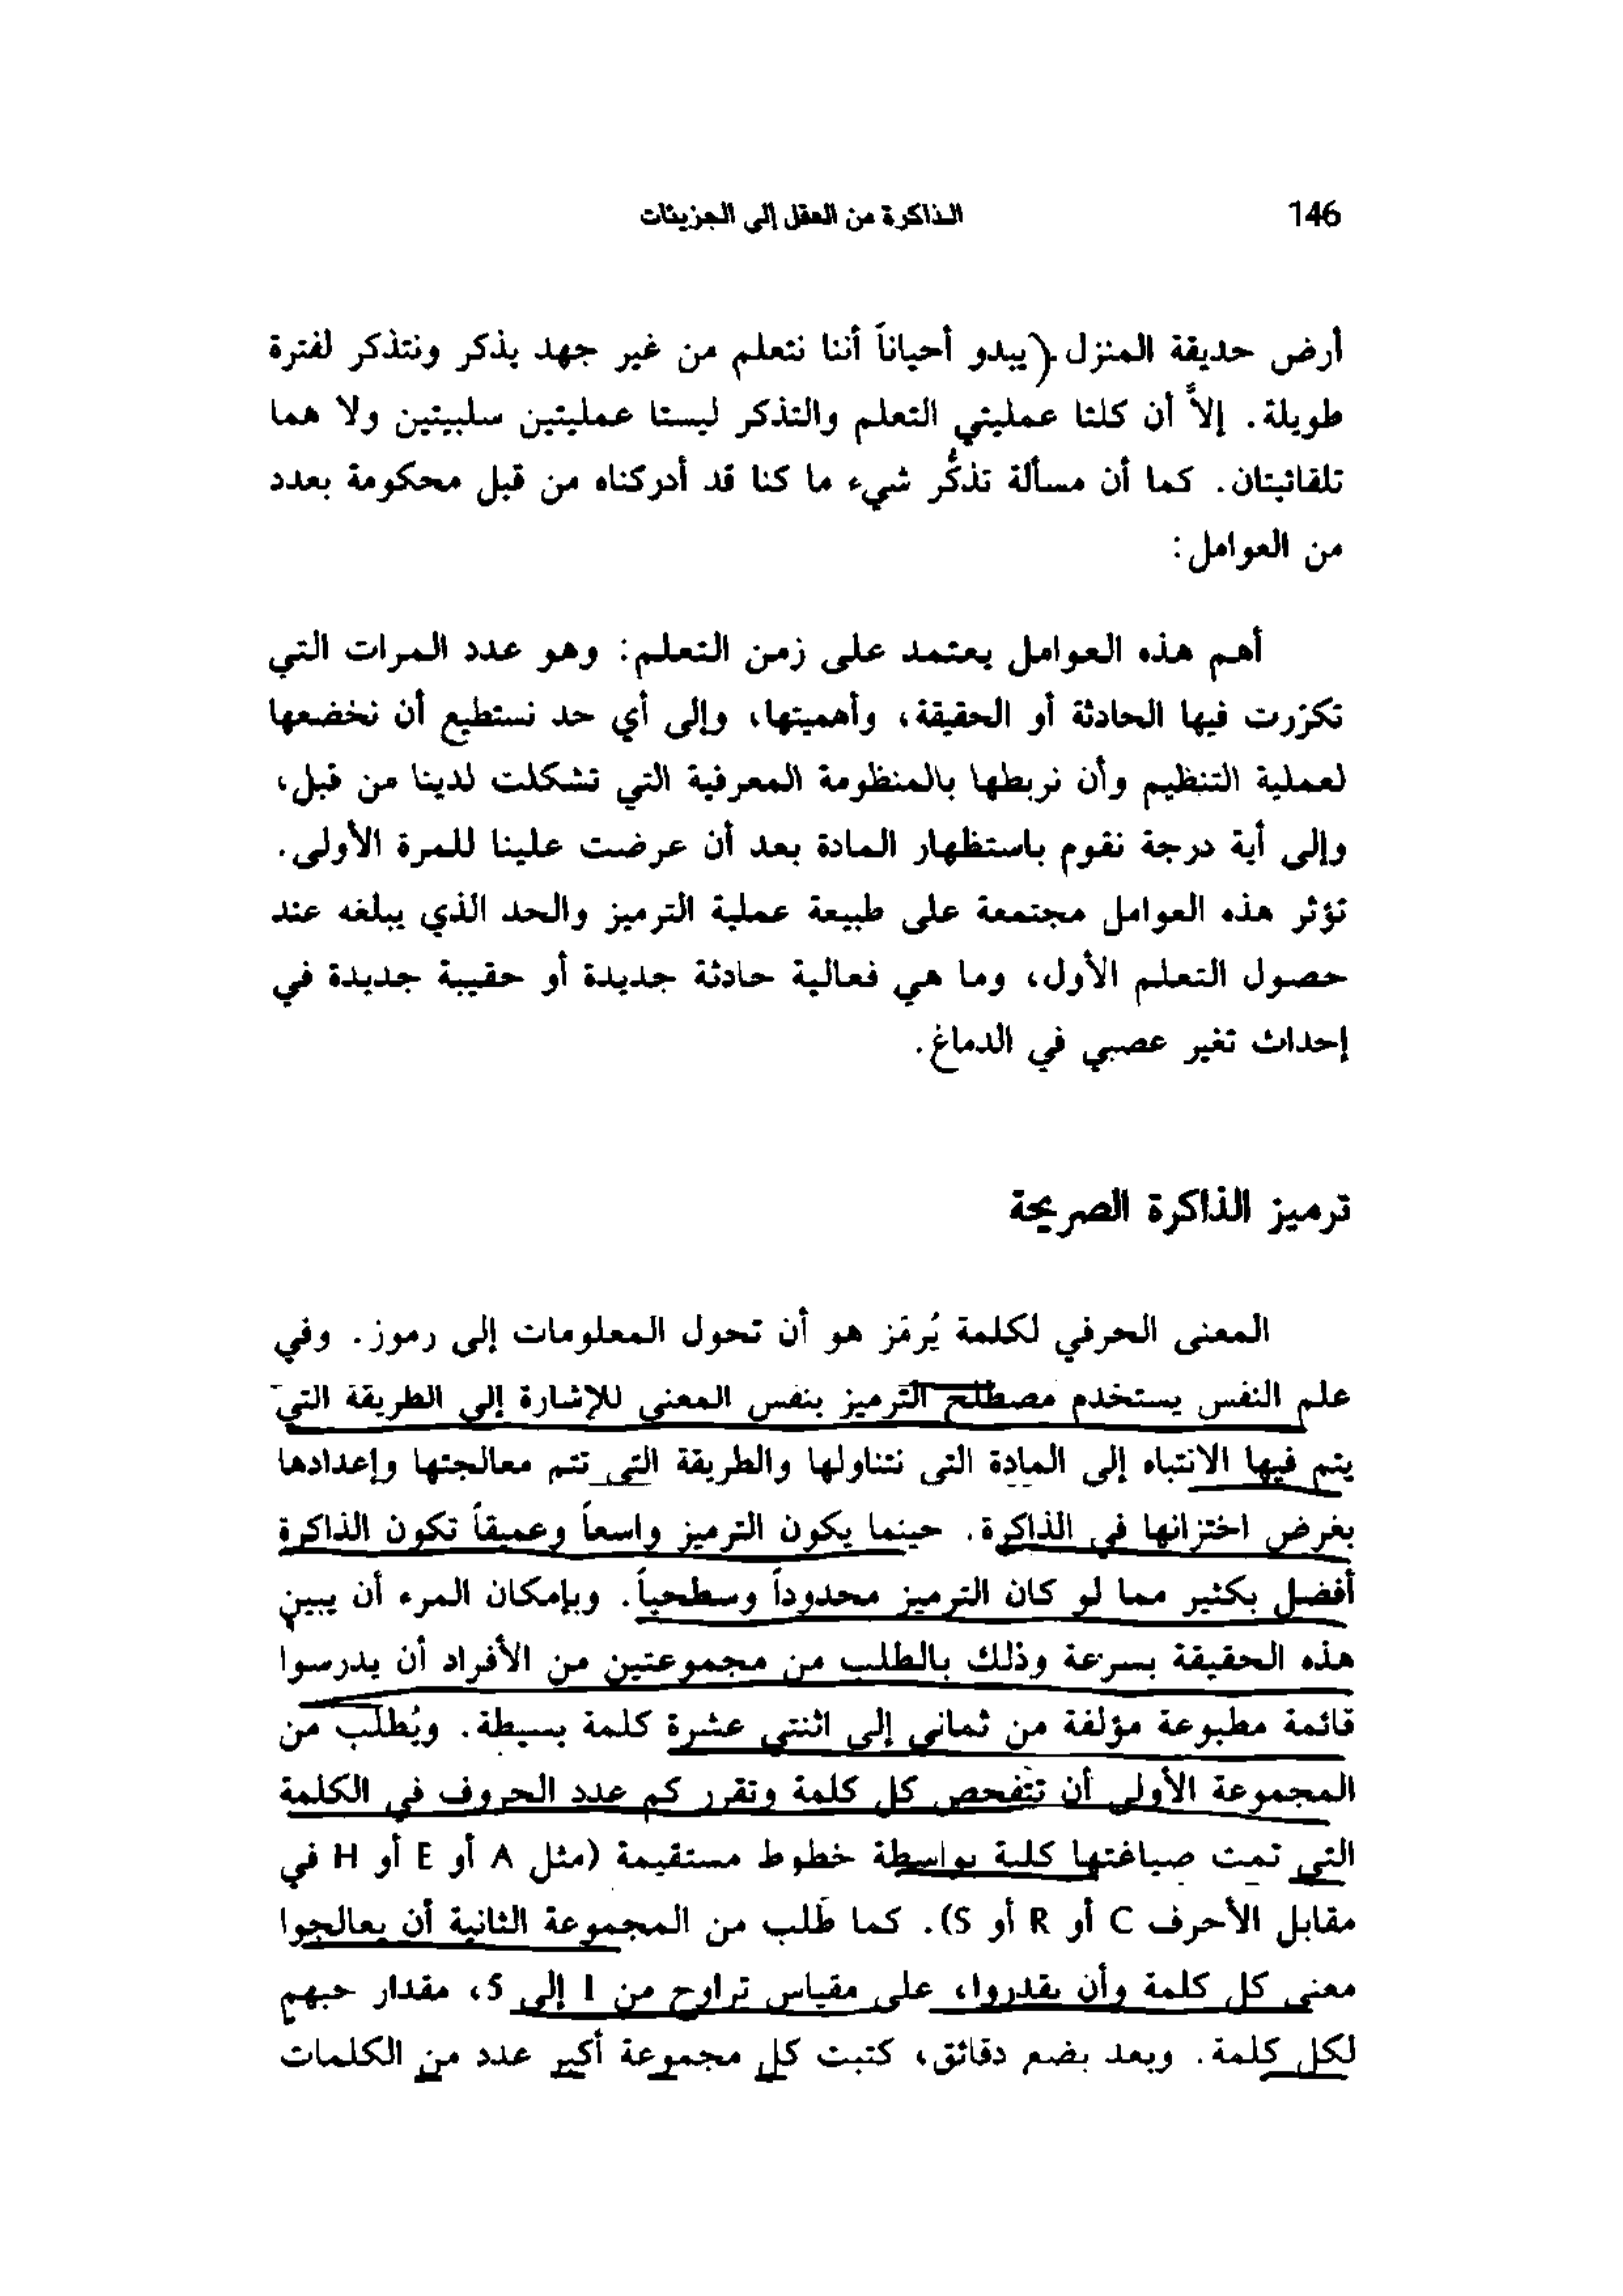 146
الذاكرة من العقل إلى الجزيئات
أرض حديقة المنزل. (يبدو أحياناً أننا نتعلم من غير جهد يذكر ونتذكر لفترة
طويلة. إلاّ أن كلتا عمليتي التعلم والتذكر ليستا عمليتين سلبيتين ولا هما
تلقائيتان. كما أن مسألة تذكُّر شيء ما كنا قد أدركناه من قبل محكومة بعدد
من العوامل:
أهم هذه العوامل يعتمد على زمن التعلم: وهو عدد المرات التي
تكرّرت فيها الحادثة أو الحقيقة، وأهميتها، وإلى أي حد نستطيع أن نخضعها
لعملية التنظيم وأن نربطها بالمنظومة المعرفية التي تشكلت لدينا من قبل،
وإلى أية درجة نقوم باستظهار المادة بعد أن عرضت علينا للمرة الأولى.
تؤثر هذه العوامل مجتمعة على طبيعة عملية الترميز والحد الذي يبلغه عند
حصول التعلم الأول، وما هي فعالية حادثة جديدة أو حقيبة جديدة في
إحداث تغير عصبي في الدماغ.
ترميز الذاكرة الصريحة
المعنى الحرفي لكلمة يُرمّز هو أن تحول المعلومات إلى رموز. وفي
علم النفس يستخدم مصطلح الترميز بنفس المعنى للإشارة إلى الطريقة التي
يتم فيها الانتباه إلى المادة التي نتناولها والطريقة التي تتم معالجتها وإعدادها
بغرض اختزانها في الذاكرة. حينما يكون الترميز واسعاً وعميقاً تكون الذاكرة
أفضل بكثير مما لو كان الترميز محدوداً وسطحياً. وبإمكان المرء أن يبين
هذه الحقيقة بسرعة وذلك بالطلب من مجموعتين من الأفراد أن يدرسوا
قائمة مطبوعة مؤلفة من ثماني إلى اثنتي عشرة كلمة بسيطة. ويُطلب من
المجموعة الأولى أن تتفحص كل كلمة وتقرر كم عدد الحروف في الكلمة
التي تمت صياغتها كلية بواسطة خطوط مستقيمة (مثل A أو E أو H في
مقابل الأحرف C أو R أو S). كما طُلب من المجموعة الثانية أن يعالجوا
معنى كل كلمة وأن يقدروا، على مقياس تراوح من 1 إلى 5، مقدار حبهم
لكل كلمة. وبعد بضع دقائق، كتبت كل مجموعة أكبر عدد من الكلمات